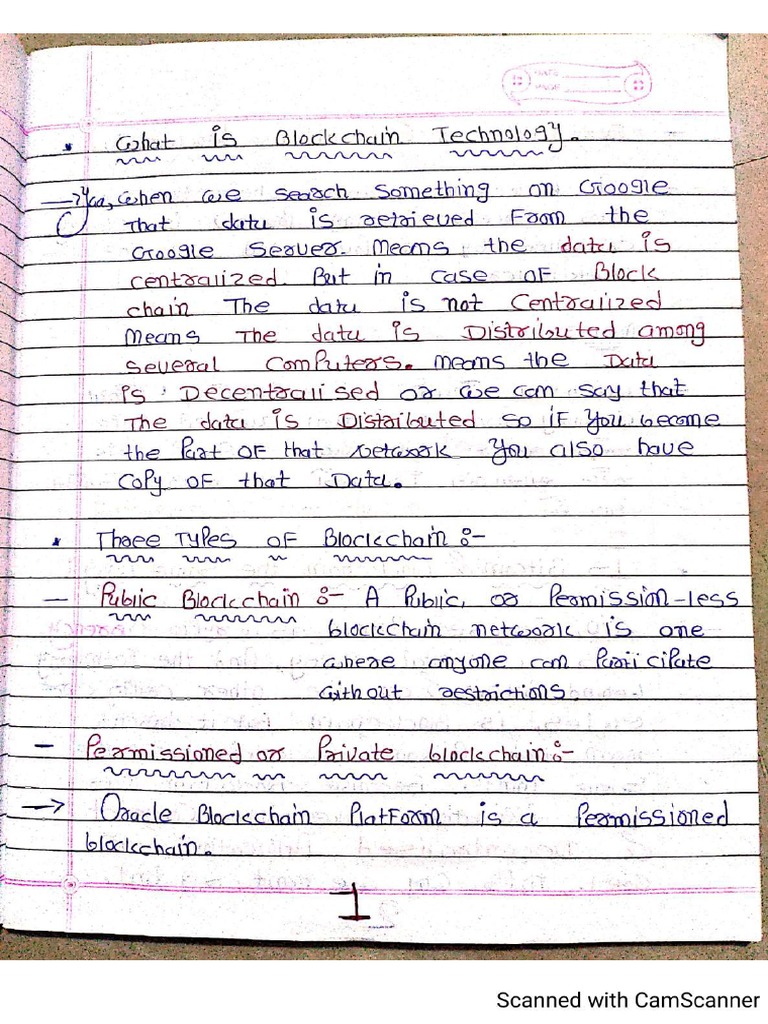 • What is Blockchain Technology.
→ Yaa, When we search something on Google
That data is retrieved From the
Google Server. Means the data is
centralized. But in case of Block
chain The data is not Centralized
Means The data is Distributed among
several Computers. means the Data
is Decentralised or we can say that
The data is Distributed so if You become
the Part of that Network You also have
Copy of that Data.
• Three Types of Blockchain :-
– Public Blockchain :- A Public, or Permission-less
blockchain network is one
where anyone can Participate
without restrictions.
– Permissioned or Private blockchain:-
→ Oracle Blockchain Platform is a Permissioned
blockchain.
1
Scanned with CamScanner